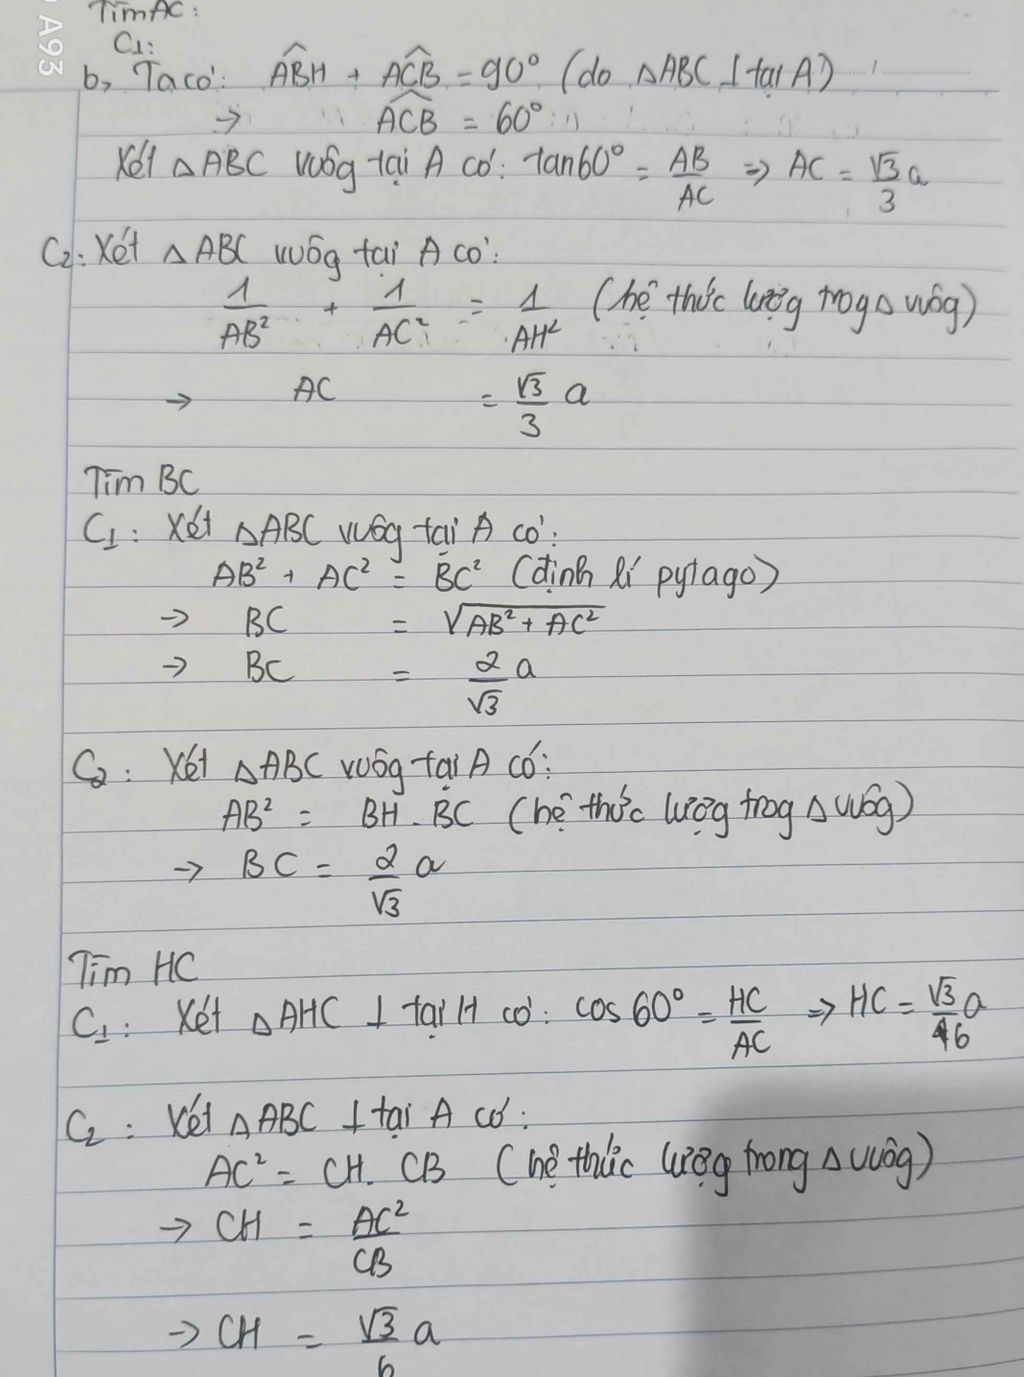 A93
Tìm AC:
C1:
b, Ta có: ABH + ACB = 90° (do △ABC ⊥ tại A)
→ ACB = 60°
Xét △ABC vuôg tại A có: tan60° = AB/AC ⇒ AC = √3/3 a
C2: Xét △ABC vuôg tại A có:
1/AB² + 1/AC² = 1/AH² (hệ thức lượg trog △ vuôg)
→ AC = √3/3 a
Tìm BC
C1: Xét △ABC vuôg tại A có:
AB² + AC² = BC² (định lí pytago)
→ BC = √(AB² + AC²)
→ BC = 2/√3 a
C2: Xét △ABC vuôg tại A có:
AB² = BH . BC (hệ thức lượg trog △ vuôg)
→ BC = 2/√3 a
Tìm HC
C1: Xét △AHC ⊥ tại H có: cos60° = HC/AC ⇒ HC = √3/6 a
C2: Xét △ABC ⊥ tại A có:
AC² = CH. CB (hệ thức lượg trong △ vuôg)
→ CH = AC²/CB
→ CH = √3/6 a